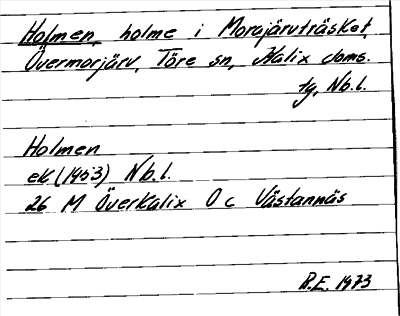 Holmen, holme i Morajärvträsket,
Övermorjärv, Töre sn, Kalix doms.
tg, Nb.l.
Holmen
ek (1953) Nb.l.
26 M Överkalix O c Västannäs
B.E. 1973